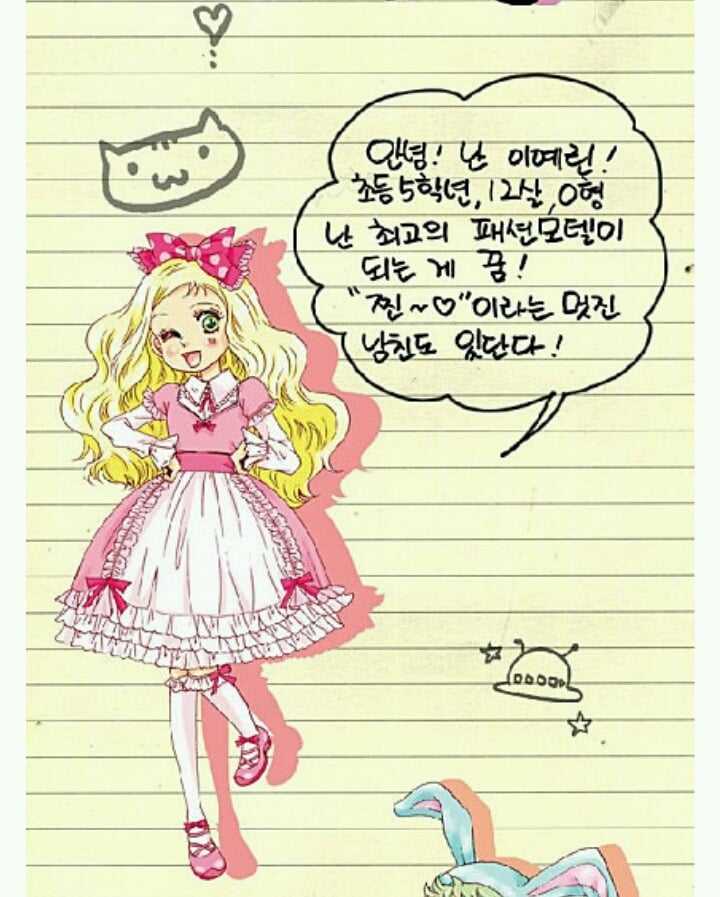 안녕! 난 이예린!
초등5학년, 12살, O형
난 최고의 패션모델이
되는 게 꿈!
"찐~♡"이라는 멋진
남친도 있단다!